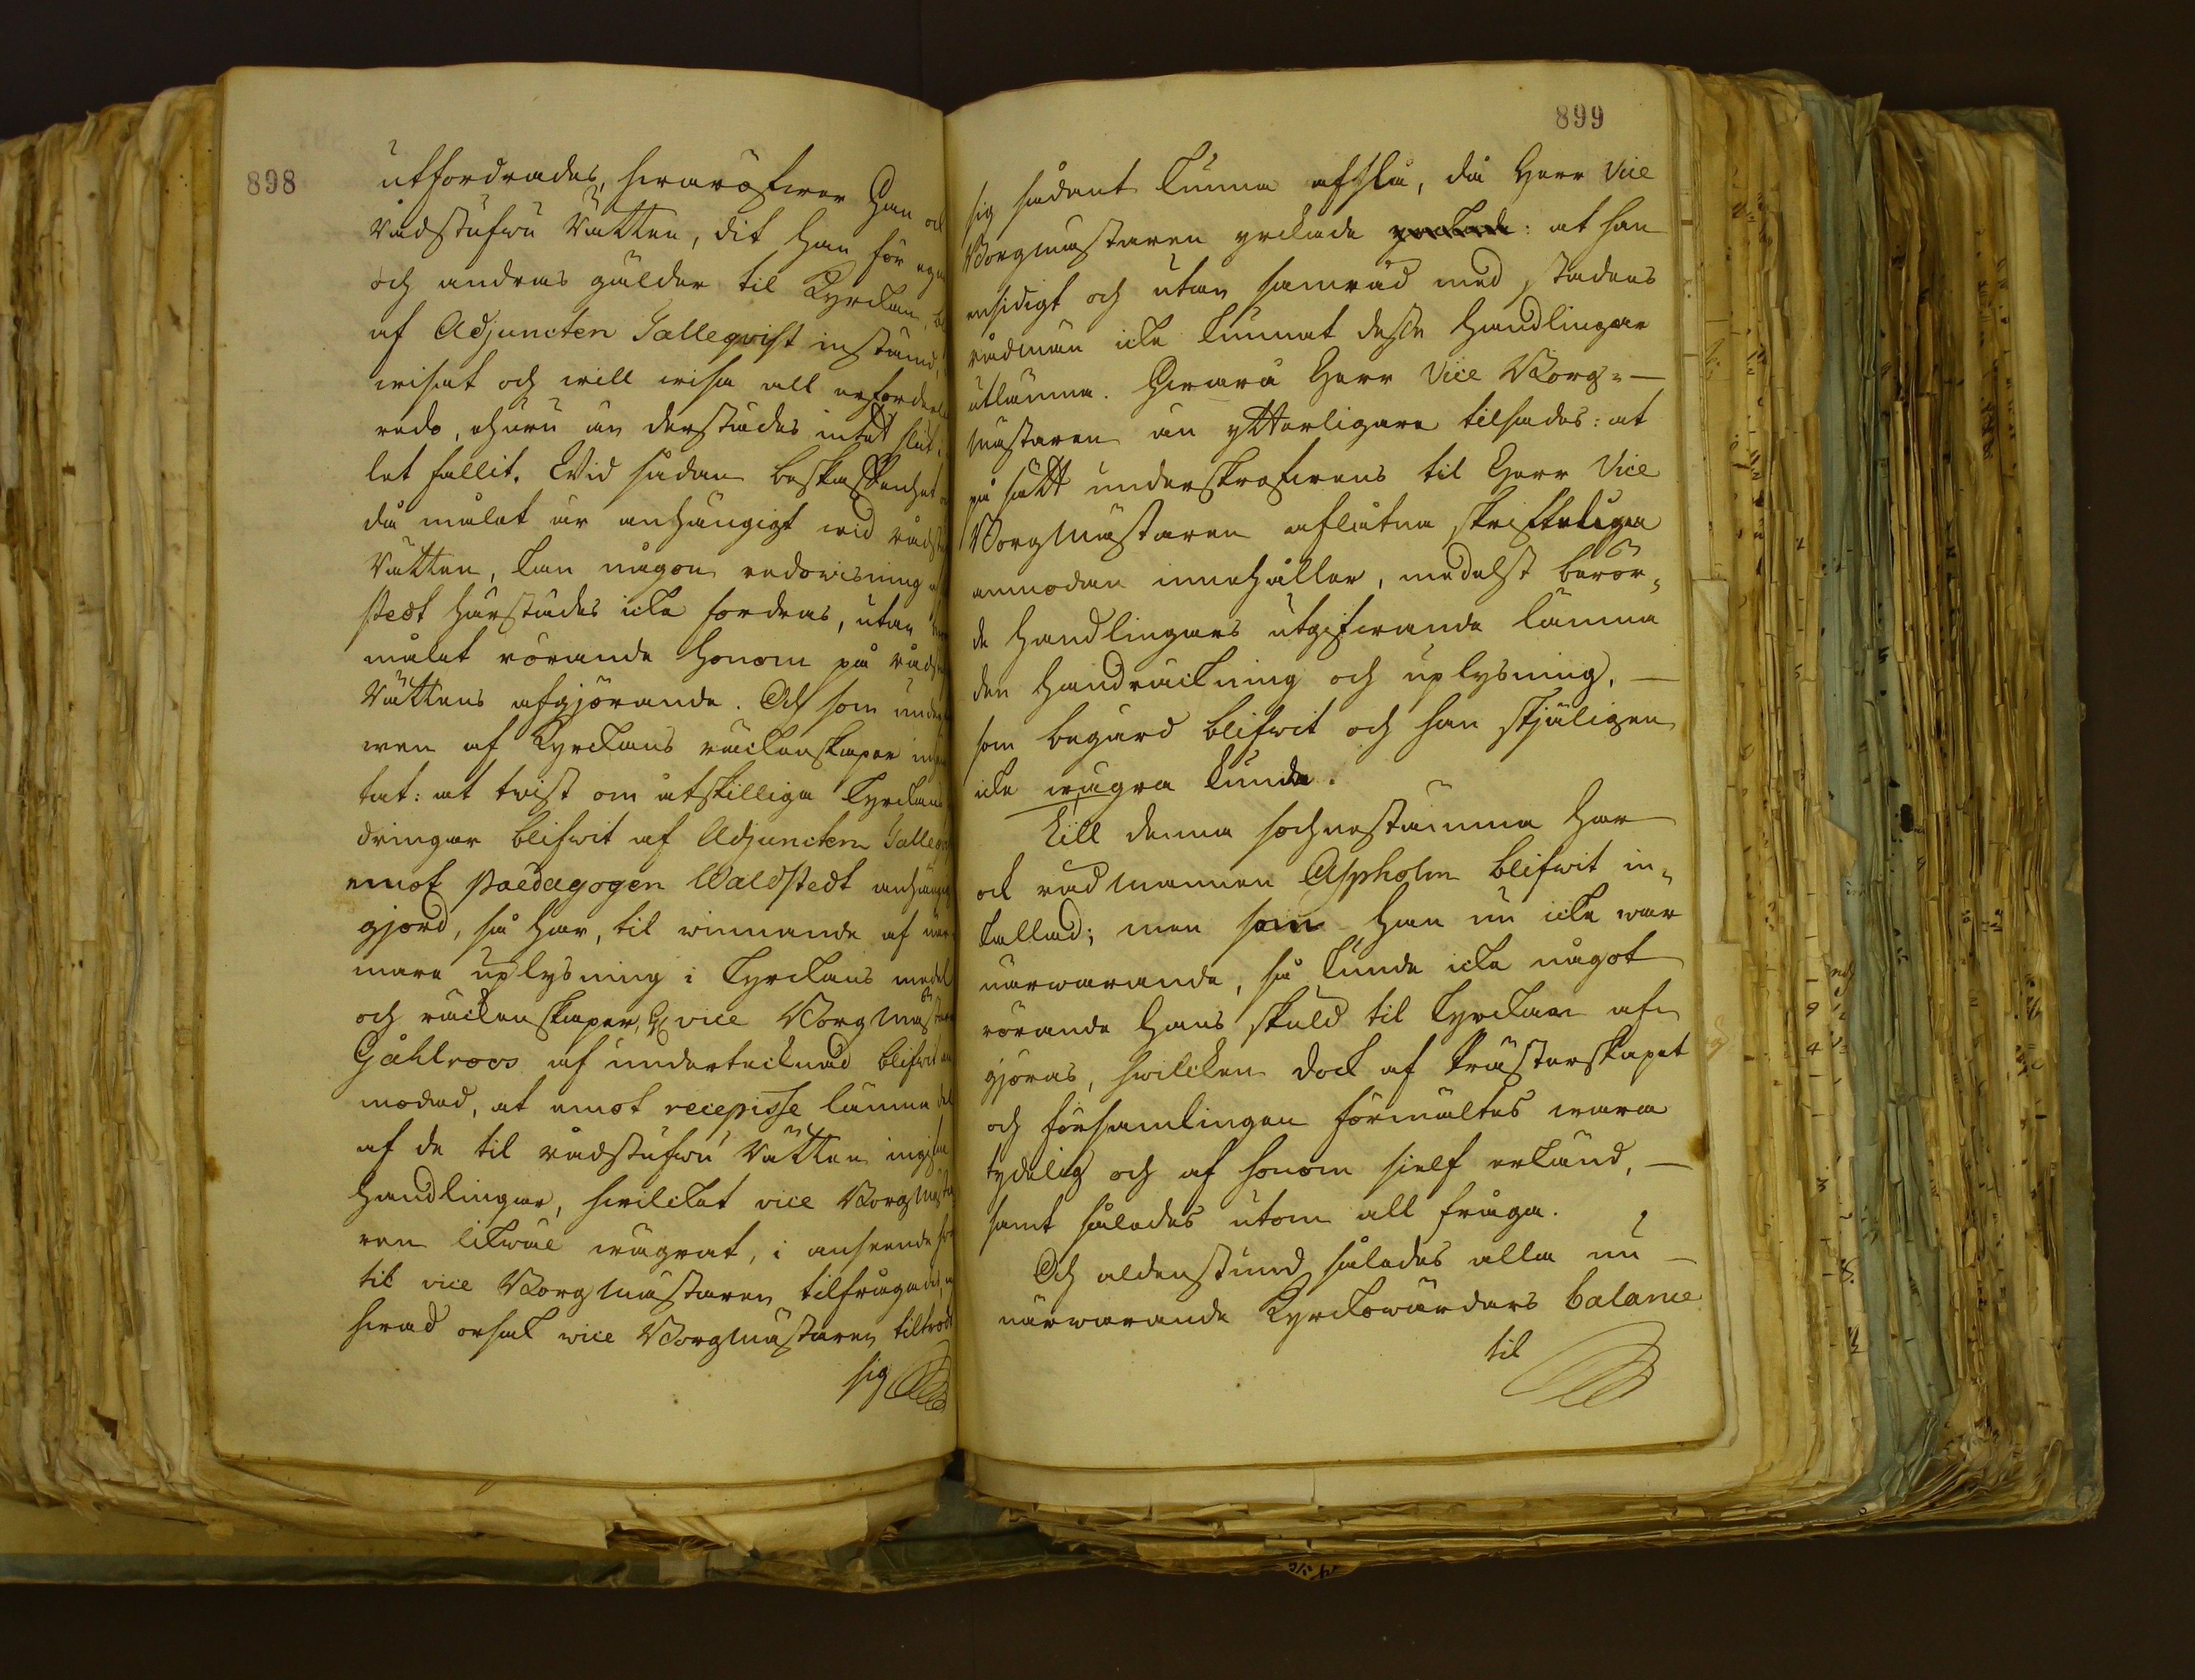 898
utfordrades, hwaröfwer Han och
Rådstufwu Rätten, dit Han för egn
och andras gälder til Kyrckan, bl
af Adjuncten Salleqvist instämd,
wisat och will wisa all erforderl
redo, ehuru än derstädes intet slut.
let fallit. Wid sådan beskaffenhet
då målet är anhängigt wid rådst
Rätten, kan någon redowisning af
stedt härstädes icke fordras, utan
målet rörande Honom på Rådst
Rättens afgjörande. Och som
wen af Kyrckans räckenskaper
tat: at twist om åtskilliga Kyrckans
dringar blifwit af Adjuncten Salleqv
emot Paedagogen Waldstedt anhängig
gjord, så har, til winnande af när
mare uplysning i Kyrckans medel
och räckenskaper, vice Borgmästare
Gåhlroos af undertecknad blifwit an
modad, at emot recepisse lämna del
af de til rådstufwu Rätten ingifna
Handlingar, hwilcket vice Borgmästa
ren likwäl wägrat, i anseende hwar
til vice Borgmästaren tilfrågades,
hwad orsak vice Borgmästaren tiltrodt
sig
899
sig sådant kunna afslå, då Herr Vice
Borgmästaren yrckade yrckade: at han
ensidigt och utan samråd med stadens
rådmän icke kunnat desse Handlingar
utlämna. Hwarå Herr Vice Borg-
mästaren än ytterligare tilsades: at
på sätt underskrefwens til Herr Vice
Borgmästaren aflåtna skrifteliga
anmodan innehåller, medelst berör-
de Handlingars utgifwande lämna
den Handräckning och uplysning,
som begärd blifwit och han skjäligen
icke wägra kunde.
Till denna sochnestämma har
ock rådmannen Aspholm blifwit in-
kallad; men som Han nu icke war
närwarande, så kunde icke något
rörande Hans skuld til Kyrckan af-
gjöras, hwilcken dock af Prästerskapet
och församlingen förmältes wara
tydelig och af honom sielf erkänd,
samt således utom all fråga.
Och aldenstund således alla nu
närwarande Kyrckowärdars balance
til